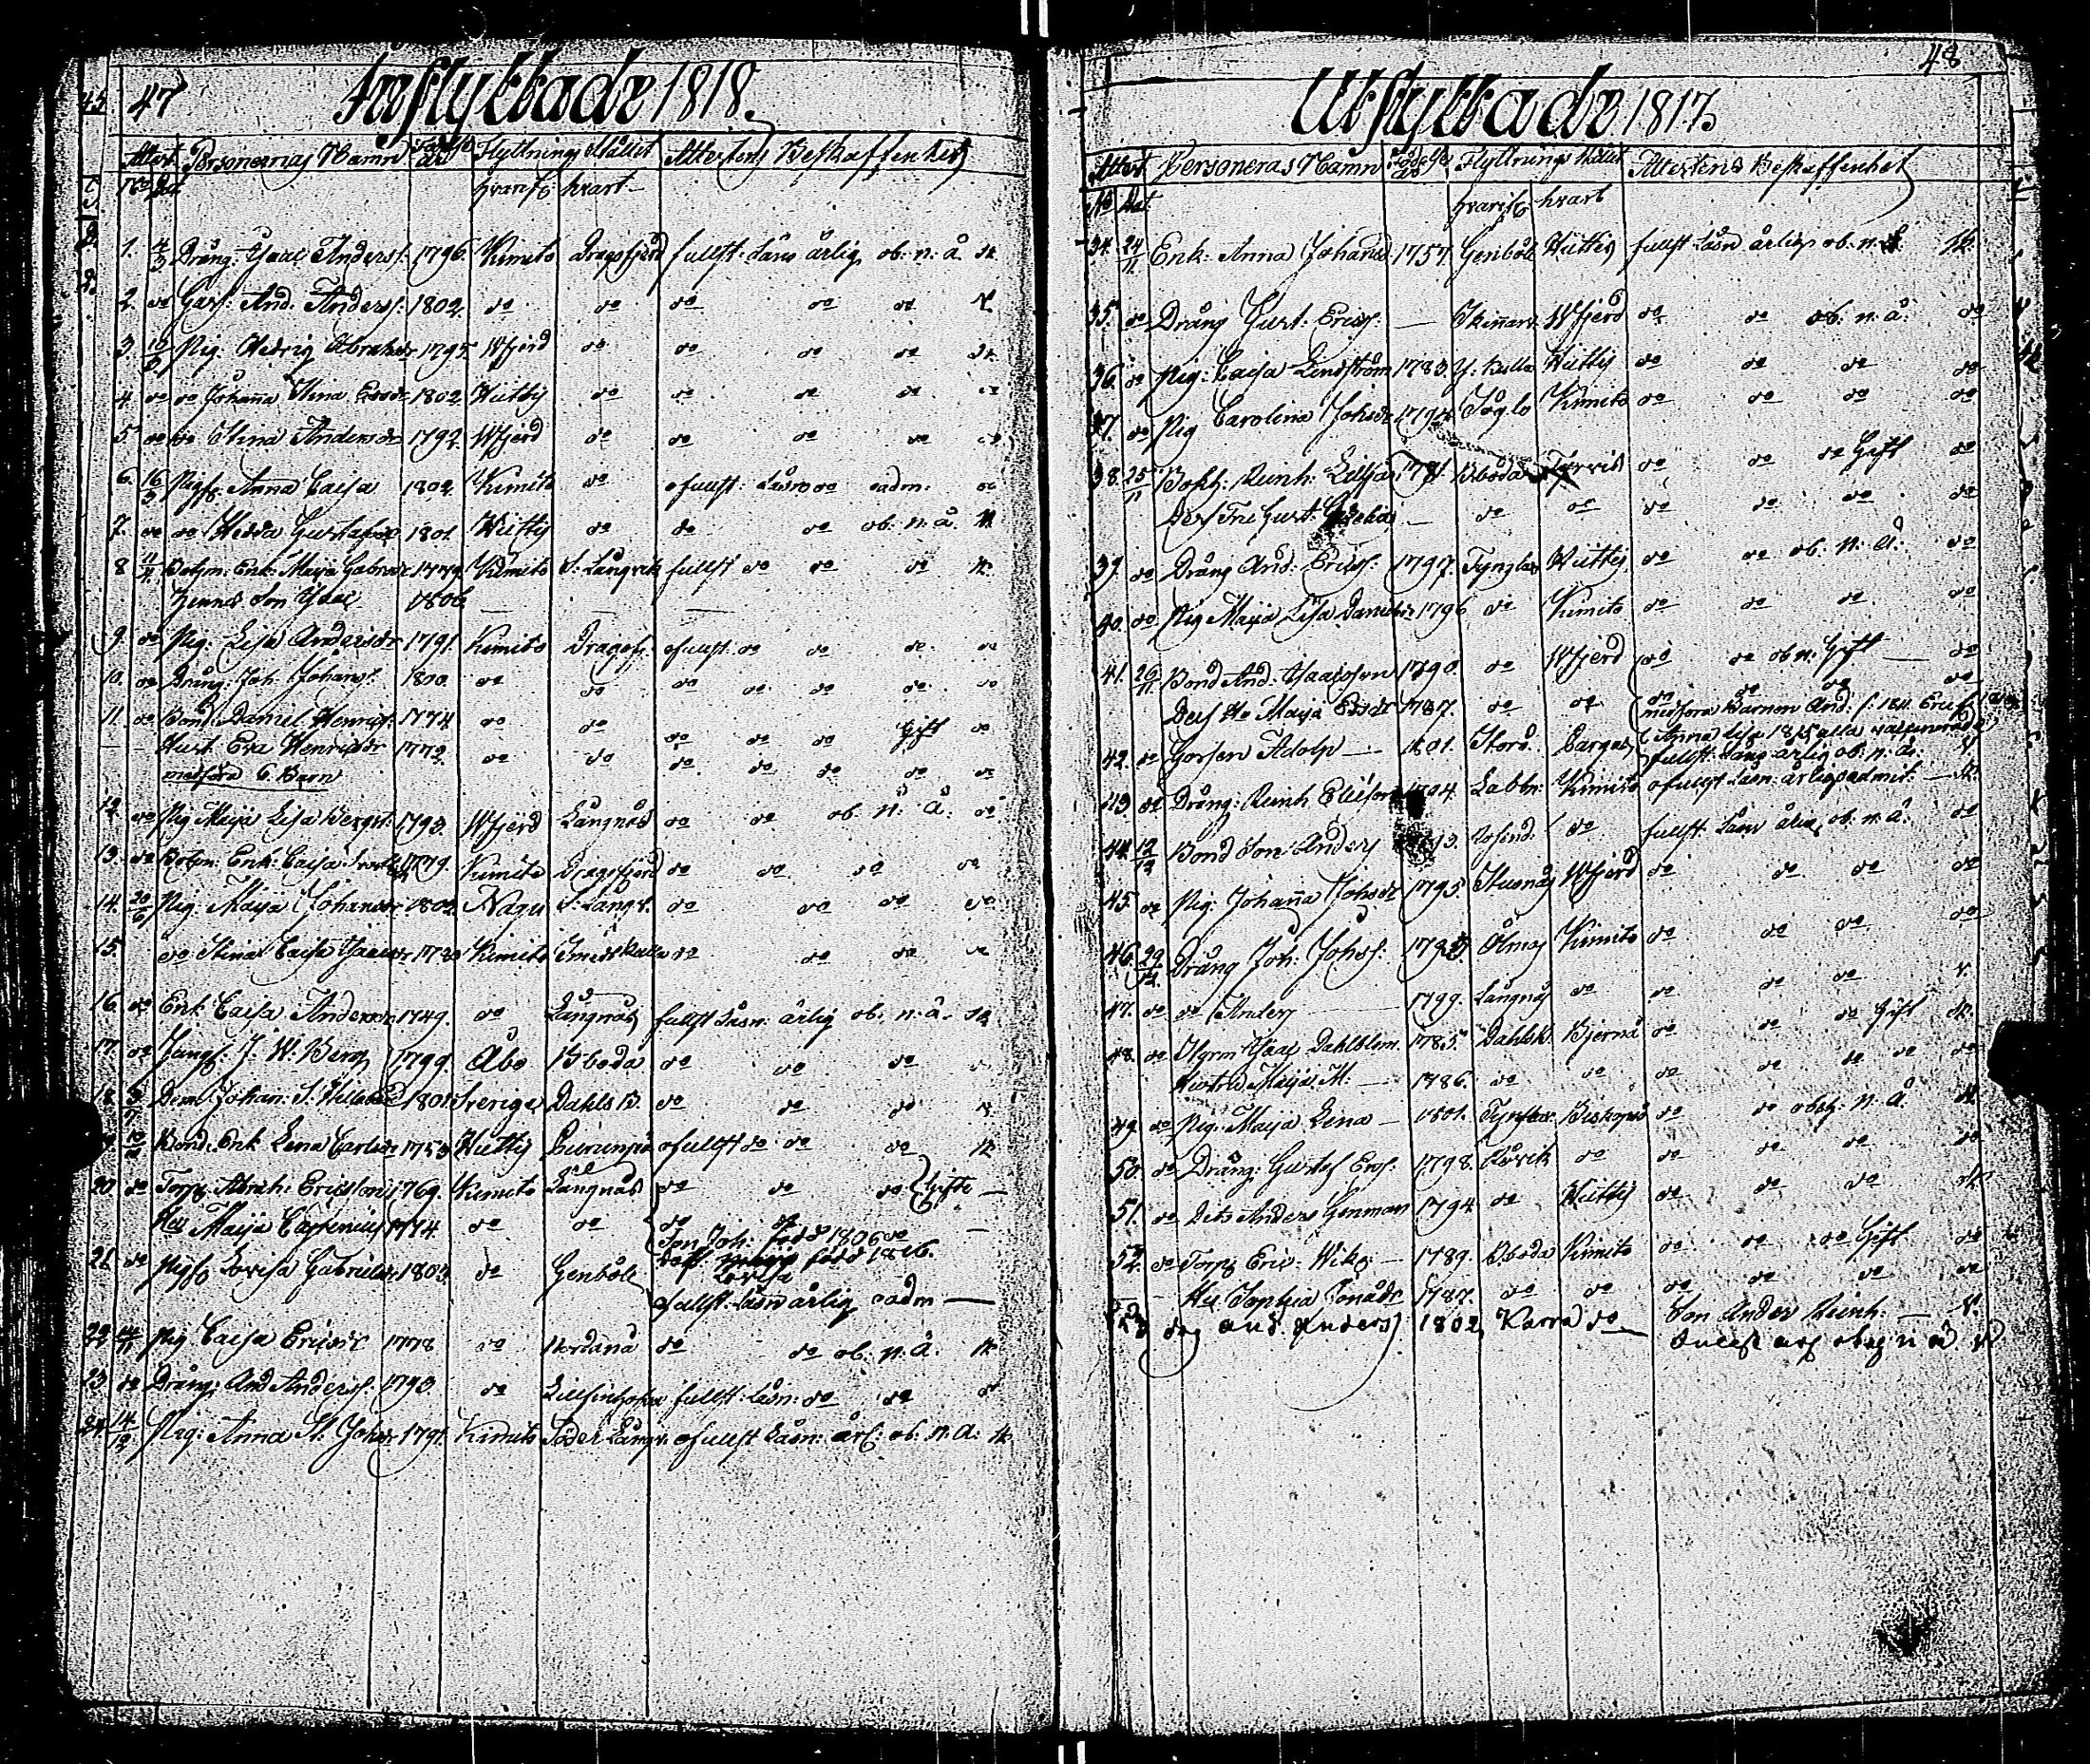 47
Inflyttade 1818.
Attest. Personernas Namn Födelse år Flyttnings Stället Attestens Beskaffenhet
No Dat hvarifr: hvart
1. 4/3 Dräng: Isaac Anderss: 1796. Kimito Dragsfjerd fullst: Läsn årlig ob: n: å.
2. do Garf: And: Anderss: 1802. do do do do do
3. Pig. Hedvig Abrahdr 1795. Wfjerd do do do do
4 do do Johanna Stina Ersdr 1802 Hittis do do do do
5. do do Stina Andersdr 1792 Wfjerd do do do do
6. 16/3 Pigfl: Anna Caisa 1802. Kimito do ofullst: Läsn do oadm: do
7. do do Hedda Gustafsdr 1801. Hittis do do do ob. n: å.
8 Botsm: Enk: Maja Gabrsdr 1779 Kimito S: Långvik fullst do do do
Hennes Son Isac 1806
9. do Pig: Lisa Andersdr 1791. Kimito Dragsfj. ofullst: do do do do
10. do Dräng: Joh: Johanss: 1800. do do do do do do do
11. do Bond: Daniel Henrics: 1774 do do do do do Gift do
Hust. Eva Henricsdr 1772 do do do do do do do
medföra 6. Barn
12. do Pig Maja Lisa Bergst: 1793. Wfjerd Långnäs do do ob. n: å: do
13. do Botsm: Enk: Caisa 1779. Kimito Dragsfjerd do do do do
14. 20/6 Pig: Maja Johansdr 1802. Nagu S: Långv. do do do do
15. do Stina Caisa Isaacsdr 1780 Kimito Smedskulla do do do
16. do Enk Caisa Andersdr 1749. do Långnäs fullst Läsn: årlig ob: n: å.
17. do Jungf: J: W: Berg 1799. Åbo Bboda do do do
18. Dem Johan: S: 1801. Sverige Dahls B. do do do
19. Bond: Enk Lena Carlsdr 1753 Hittis ofullst do do do
20. do Torp: Abrah: Ericsson 1769. Kimito Långnäs do do do Gifte
Hu Maja Castenius 1774. do do do do
Son Joh: född 1806 do
dott: född 1816.
Lovisa
21. do Pigfl Lovisa Gabrielsdr 1803. do Genböle ofullst: Läsn årlig oadm
22. Pig Caisa Ericsdr 1778 do Nordanå do do ob. n: å.
23. do Dräng: And Anderss: 1793. do Lillfinhofva fullst: Läsn: do do do
24. 14/12 Pig: Anna St. Johsdr 1791. Kimito Söder Långv. ofullst Läsn: årl: ob: n: a:
48
Utflyttade 1817.
Attest Personernas Namn Födelse år Flyttnings Stället Attestens Beskaffenhet
No Dat hvarifr hvart
34. 24/11 Enk: Anna Johansd 1757. Genböle Hittis fullst Läsn årlig ob: n: å
35. do Dräng Gust: Ericss: — Skinnarv Wfjerd do do ob: n: å: do
36. do Pig: Caisa Lindström 1783. Y: Kulla Hittis do do do do
37. do Pig Carolina Johsdr 1794. Söglo Kimito do do do do
38. 25/11 Bokh: Reinh: 1781 Bboda do do do Gift do
Dess Fru Gust: — do do do do do do
39. do Dräng And: Ericss: 1797. Tynglax Hittis do do ob: n: å: do
40. do Pig Maja Lisa Danielsdr 1796 do Kimito do do do do
41. 26/11 Bond And: Isaacsson 1790. do Wfjerd do do ob n: Gift — do
Dess Hu Maja Ersdr 1787. do do do do do do
medföra Barnen And: f: 1811. Eric f.
Anna Lisa 1815 alla vaccinerade
42. do Gossen Adolp — 1801. Storö Pargas fullst: Läsn årlig ob. n: å:
43. do Dräng: Reinh Eliesson 1794. Labbn: Kimito ofullst Läsn: årlig oadmit:
44. 12/12 Bond Son Anders do fullst: Läsn årlig ob: n: å: do
45. do Pig: Johanna Johsdr 1795. Stusnäs Wfjerd do do do do
46. 29/12 Dräng Joh: Johss: Ölmos Kimito do do do do
47. do do Anders 1799. Långnäs do do do do
48. do Isac Dahlblom. 1785. Dahlsb. Bjernå do do do Gift
Hustru Maja M: — 1786. do do do do do do do
49. do Pig. Maja Lena — 1801. Tynglax Biskopsö do do obeg: n: å.
50. do Dräng: Gustaf Erss: 1798. Rövik do do do do do
51. do Dito Anders Genman 1794 do Hittis do do do
52. do Torp: Eric: Wik — 1789. Bboda Kimito do do do Gift do
Hu Sophia Jonædr 1787. do do do do do do
Son Anders Reinh. —
And: Anderss 1802 Karra do